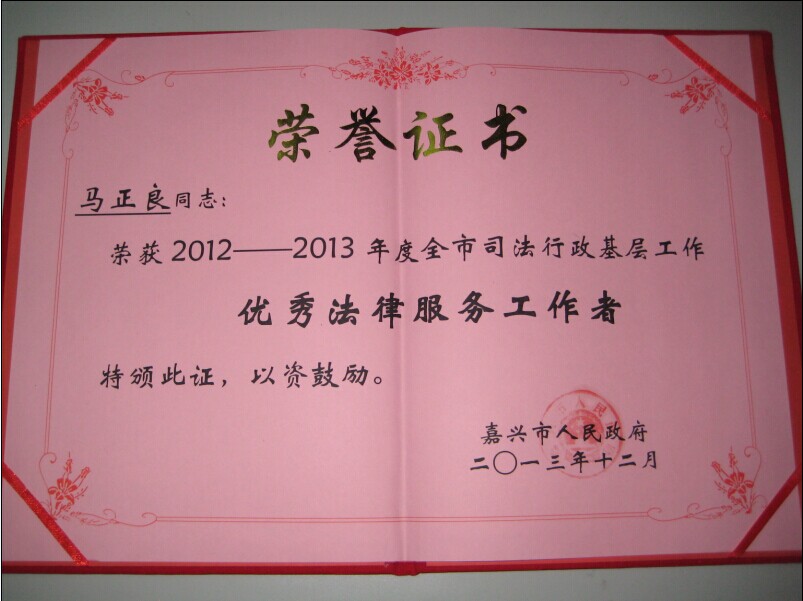 荣誉证书
马正良同志：
荣获2012——2013年度全市司法行政基层工作
优秀法律服务工作者
特颁此证，以资鼓励。
嘉兴市人民政府
二〇一三年十二月